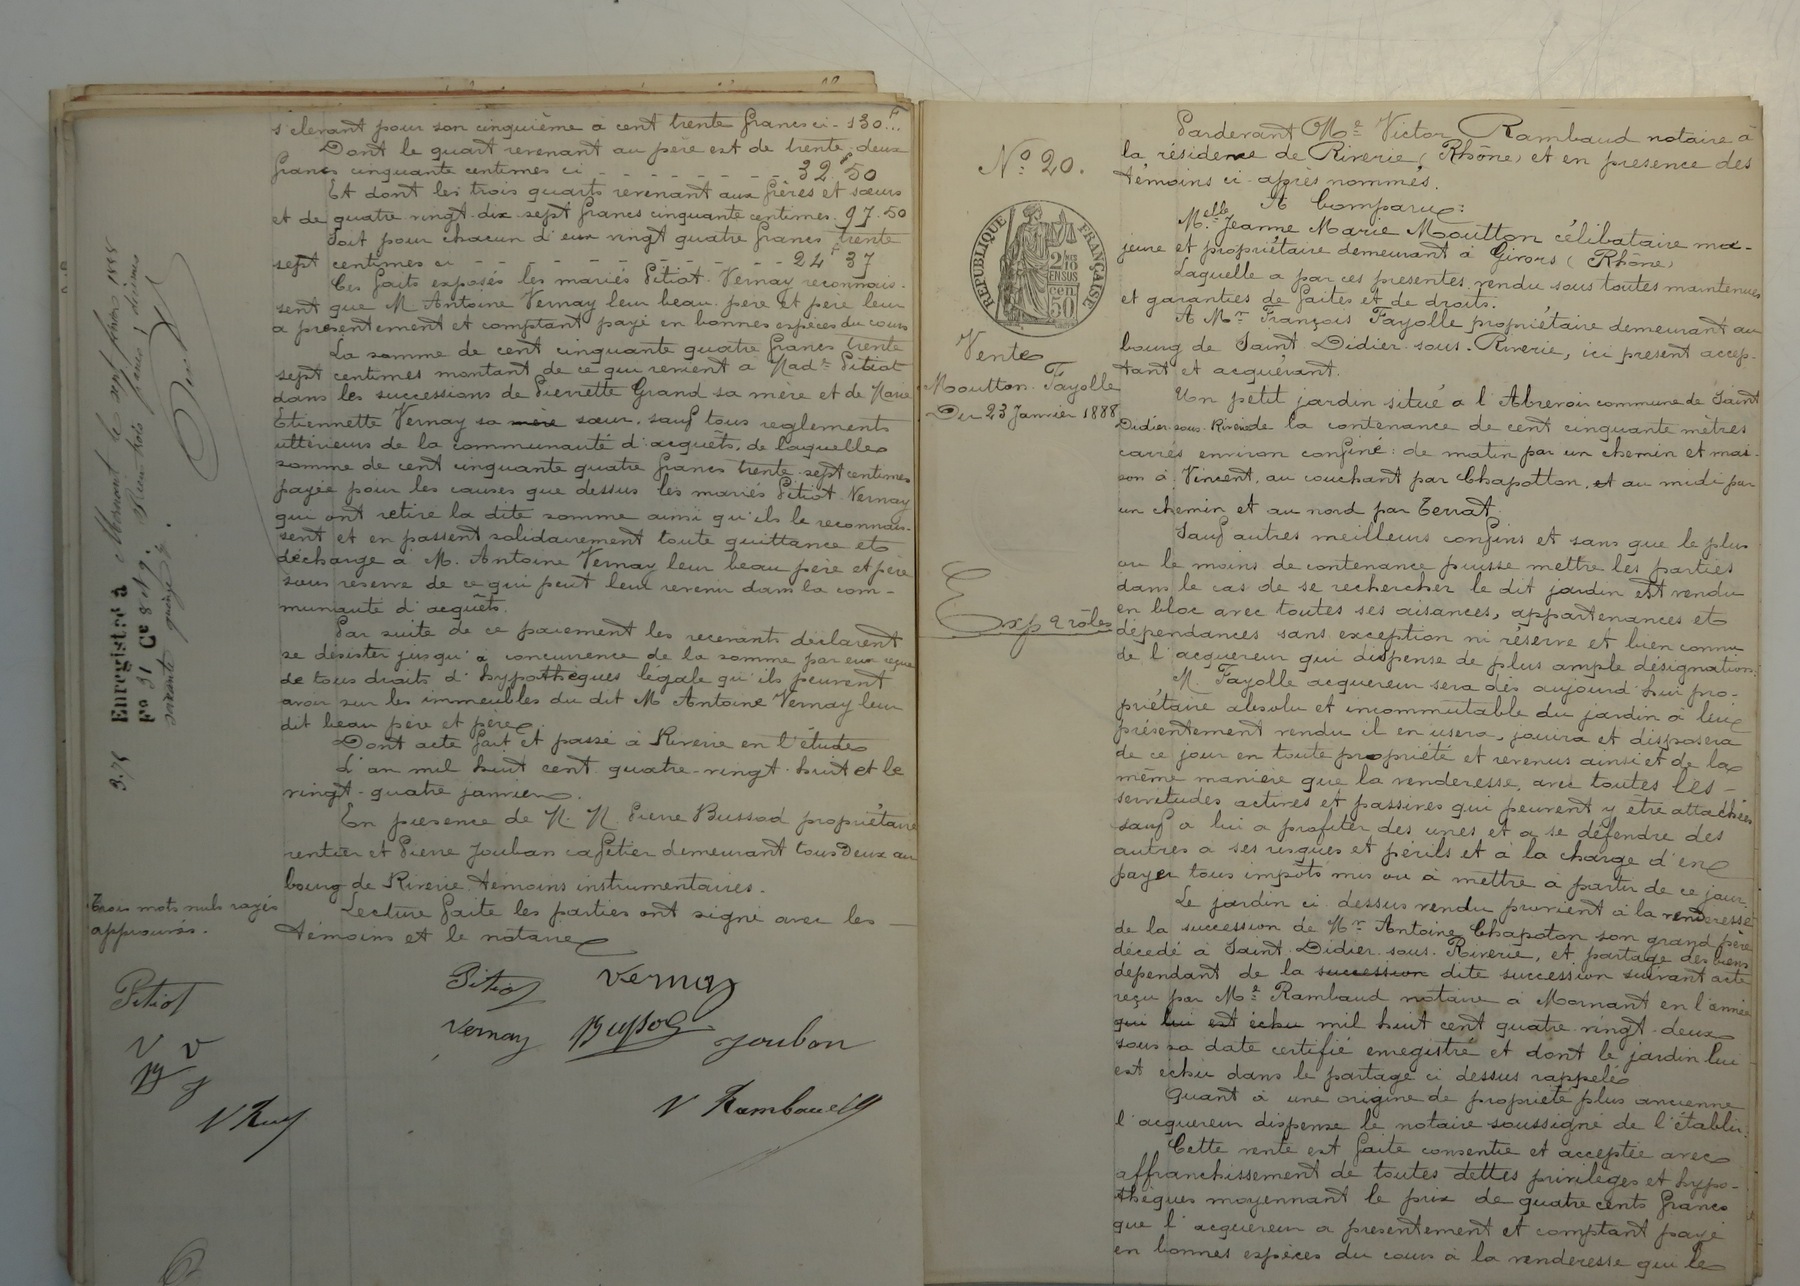 s'elevant pour son cinquième a cent trente francs ci - 130 F...
Dont le quart revenant au père est de trente-deux
francs cinquante centimes ci - - - - - - - - 32 F 50
Et dont les trois quarts revenant aux frères et sœurs
et de quatre vingt-dix-sept francs cinquante centimes. 97.50
Soit pour chacun d'eux vingt quatre francs trente
sept centimes ci - - - - - - - - - - - - 24 F 37
Ces faits exposés les mariés Pitiot-Vernay reconnais-
sent que M Antoine Vernay leur beau-père et père leur
a presentement et comptant payé en bonnes espèces du cours
La somme de cent cinquante quatre francs trente
sept centimes montant de ce qui revient a Made Pitiot
dans les successions de Pierrette Grand sa mère et de Marie
Etiennette Vernay sa mère sœur, sauf tous reglements
ultérieurs de la communauté d'acquêts, de laquelle
somme de cent cinquante quatre francs trente-sept centimes
payée pour les causes que dessus les mariés Pitiot-Vernay
qui ont retiré la dite somme ainsi qu'ils le reconnais-
sent et en passent solidairement toute quittance et
décharge à M. Antoine Vernay leur beau père et père
sous réserve de ce qui peut leur revenir dans la com-
munauté d'acquêts.
Par suite de ce paiement les recevants déclarent
se désister jusqu'à concurence de la somme par eux reçue
de tous droits d'hypothèques légale qu'ils peuvent
avoir sur les immeubles du dit M Antoine Vernay leur
dit beau père et père
Dont acte fait et passé à Riverie en l'étude
L'an mil huit cent quatre-vingt-huit et le
vingt-quatre janvier.
En présence de M. M. Pierre Bussod propriétaire
rentier et Pierre Jouban cafetier demeurant tous deux au
bourg de Riverie témoins instrumentaires.
Lecture faite les parties ont signé avec les
témoins et le notaire
Trois mots nuls rayés
approuvés.
Pitiot
V V
B J
V Ra
Pitiot Vernay
Vernay Bussod Joubon
V Rambaud
Enregistré à Mornant le sept février 1888
Fo 31 Ce 8 et 9.
soixante quinze
3.75
No 20.
REPUBLIQUE FRANÇAISE
2/10 EN SUS
50 cen
Vente
Moutton-Fayolle
Du 23 Janvier 1888
Exp 2 rôles
Pardevant Me Victor Rambaud notaire à
la résidence de Riverie (Rhône) et en présence des
témoins ci-après nommés.
A Comparu:
Melle Jeanne Marie Moutton célibataire ma-
jeure et propriétaire demeurant à Givors (Rhône)
Laquelle a par ces présentes vendu sous toutes maintenues
et garanties de faites et de droits.
A Mr François Fayolle propriétaire demeurant au
bourg de Saint Didier-sous-Riverie, ici présent accep-
tant et acquérant.
Un petit jardin situé à l'Abrevoir commune de Saint
Didier-sous-Riverie de la contenance de cent cinquante mètres
carrés environ confiné: de matin par un chemin et mai-
son à Vincent, au couchant par Chapotton, et au midi par
un chemin et au nord par Terrat.
Sauf autres meilleurs confins et sans que le plus
ou le moins de contenance puisse mettre les parties
dans le cas de se rechercher le dit jardin est vendu
en bloc avec toutes ses aisances, appartenances et
dépendances sans exception ni réserve et bien connu
de l'acquereur qui dispense de plus ample désignation.
M. Fayolle acquereur sera dès aujourd'hui pro-
priétaire absolu et incommutable du jardin à lui
présentement vendu il en usera, jouira et disposera
de ce jour en toute propriété et revenus ainsi et de la
même manière que la venderesse, avec toutes les
servitudes actives et passives qui peuvent y être attachées
sauf a lui a profiter des unes et a se défendre des
autres a ses risques et périls et à la charge d'en
payer tous impôts mis ou à mettre à partir de ce jour.
Le jardin ci dessus vendu provient à la venderesse
de la succession de Mr Antoine Chapoton son grand père
décédé à Saint Didier-sous-Riverie, et partage des biens
dépendant de la succession dite succession suivant acte
reçu par Me Rambaud notaire à Mornant en l'année
qui lui est échu mil huit cent quatre-vingt-deux
sous sa date certifié enregistré et dont le jardin lui
est échu dans le partage ci dessus rappelé
Quant à une origine de propriété plus ancienne
l'acquereur dispense le notaire soussigné de l'établir.
Cette vente est faite consentie et acceptée avec
affranchissement de toutes dettes privilèges et hypo-
thèques moyennant le prix de quatre cents francs
que l'acquereur a présentement et comptant payé
en bonnes espèces du cours à la venderesse qui le